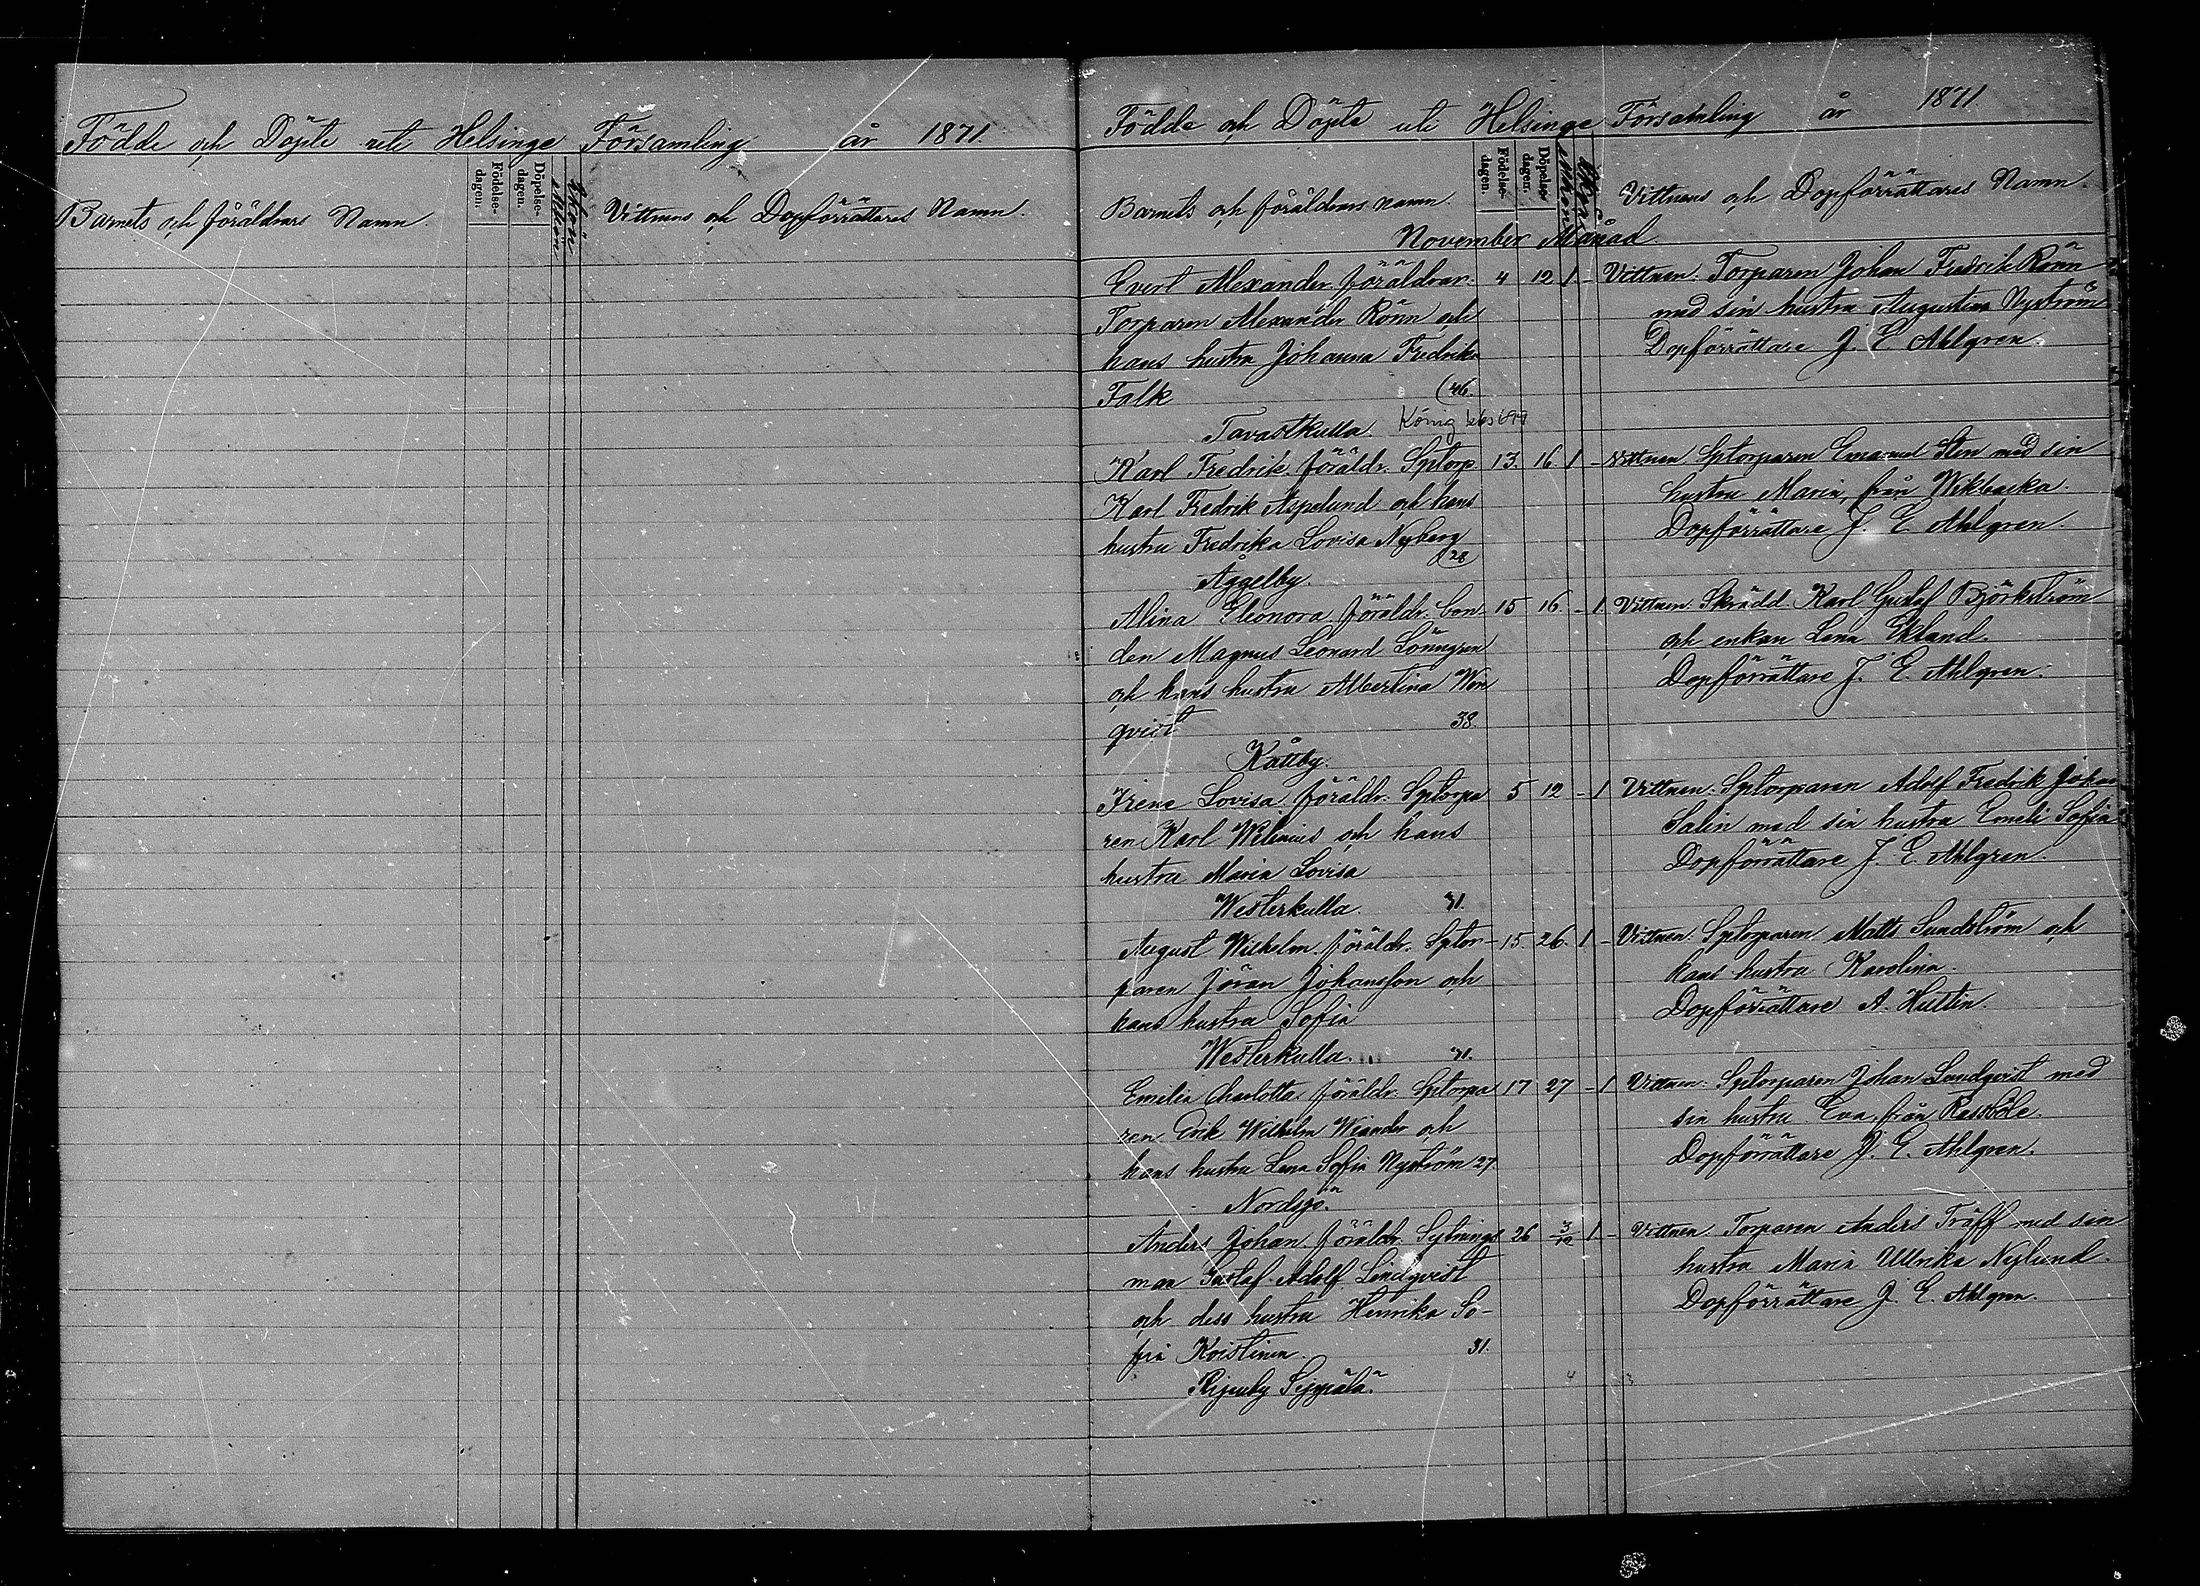 Födde och Döpte uti Helsinge Församling år 1871.
Barnets och föräldrars Namn.
Födelse-
dagen.
Döpelse-
dagen.
Mkön
Qkön
Vittnens och Dopförrättares Namn.
Födde och Döpte uti Helsinge Församling år 1871.
Barnets och föräldrars namn.
Födelse-
dagen.
Döpelse-
dagen.
Mkön
Qkön
Vittnens och Dopförrättares Namn.
November Månad.
Evert Alexander föräldrar: 4 12 1 - Vittnen. Torparen Johan Fredrik Rönn
Torparen Alexander Rönn och med sin hustru Augustina Nyström
hans hustru Johanna Fredrika Dopförrättare J. E. Ahlgren.
Falk 46.
Tavastkulla. König
Karl Fredrik föräldr. Sptorp 13. 16. 1 - Vittnen Sptorparen Emanuel Sten med sin
Karl Fredrik Aspelund och hans hustru Maria, från Wikbacka.
hustru Fredrika Lovisa Nyberg Dopförrättare J. E. Ahlgren.
28
Åggelby.
Alina Eleonora föräldr. bon- 15 16. - 1 Vittnen. Skrädd. Karl Gustaf Björkström
den Magnus Leonard Lönngren och enkan Lena Eklund.
och hans hustru Albertina Wen Dopförrättare J. E. Ahlgren.
qvist 38.
Kåttby.
Irene Lovisa föräldr. Sptorpa 5 12 - 1 Vittnen. Sptorparen Adolf Fredrik Johan
ren Karl Wilenius och hans Salin med sin hustru Emeli Sofia
hustru Maria Lovisa Dopförrättare J. E. Ahlgren.
Westerkulla. 31.
August Wilhelm. föräldr. Sptor- 15. 26. 1 - Vittnen. Sptorparen Matts Sundström och
paren Jöran Johansson och hans hustru Karolina.
hans hustru Sofia Dopförrättare A. Hultin.
Westerkulla. 31.
Emilia Charlotta föräldr. Sptorpa 17 27 - 1 Vittnen. Sptorparen Johan Lundqvist med
ren Erik Wilhelm Wiander och sin hustru Eva, från Rastböle.
hans hustru Lena Sofia Nyström 27. Dopförrättare J. E. Ahlgren.
Nordsjö.
Anders Johan föräldr. Sytnings 26 3/12 1 - Vittnen. Torparen Anders Träff med sin
man Gustaf Adolf Lindqvist hustru Maria Ullrika Nylund.
och dess hustru Henrika So- Dopförrättare J. E. Ahlgren.
fia Koistinen. 31.
Sippälä.